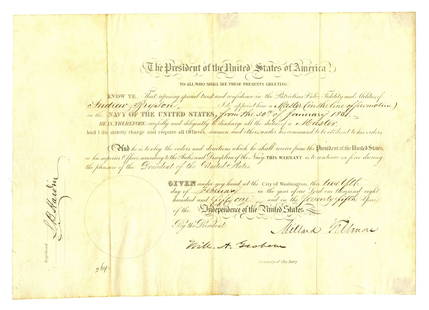 The President of the United States of America
TO ALL WHO SHALL SEE THESE PRESENTS GREETING:
KNOW YE, That reposing special trust and confidence in the Patriotism Valor, Fidelity and Abilities of
Andrew Bryson I do appoint him a Master (in the line of promotion)
in the NAVY OF THE UNITED STATES, from the 30th of January 1851
THEREFORE, carefully and diligently to discharge all the duties of a Master
And I do strictly charge and require all Officers, Seamen and others under his command to be obedient to his orders
And he is to obey the orders and directions which he shall receive from the President of the United States
or his superior Officer according to the Rules and Discipline of the Navy THIS WARRANT to continue in force during
the pleasure of the President of the United States
GIVEN under my hand at the City of Washington, this twelfth
day of February in the year of our Lord one thousand eight
hundred and fifty one and in the seventy fifth year
of the Independence of the United States
By the President
Millard Fillmore
Will. A. Graham
Secretary of the Navy
Registered